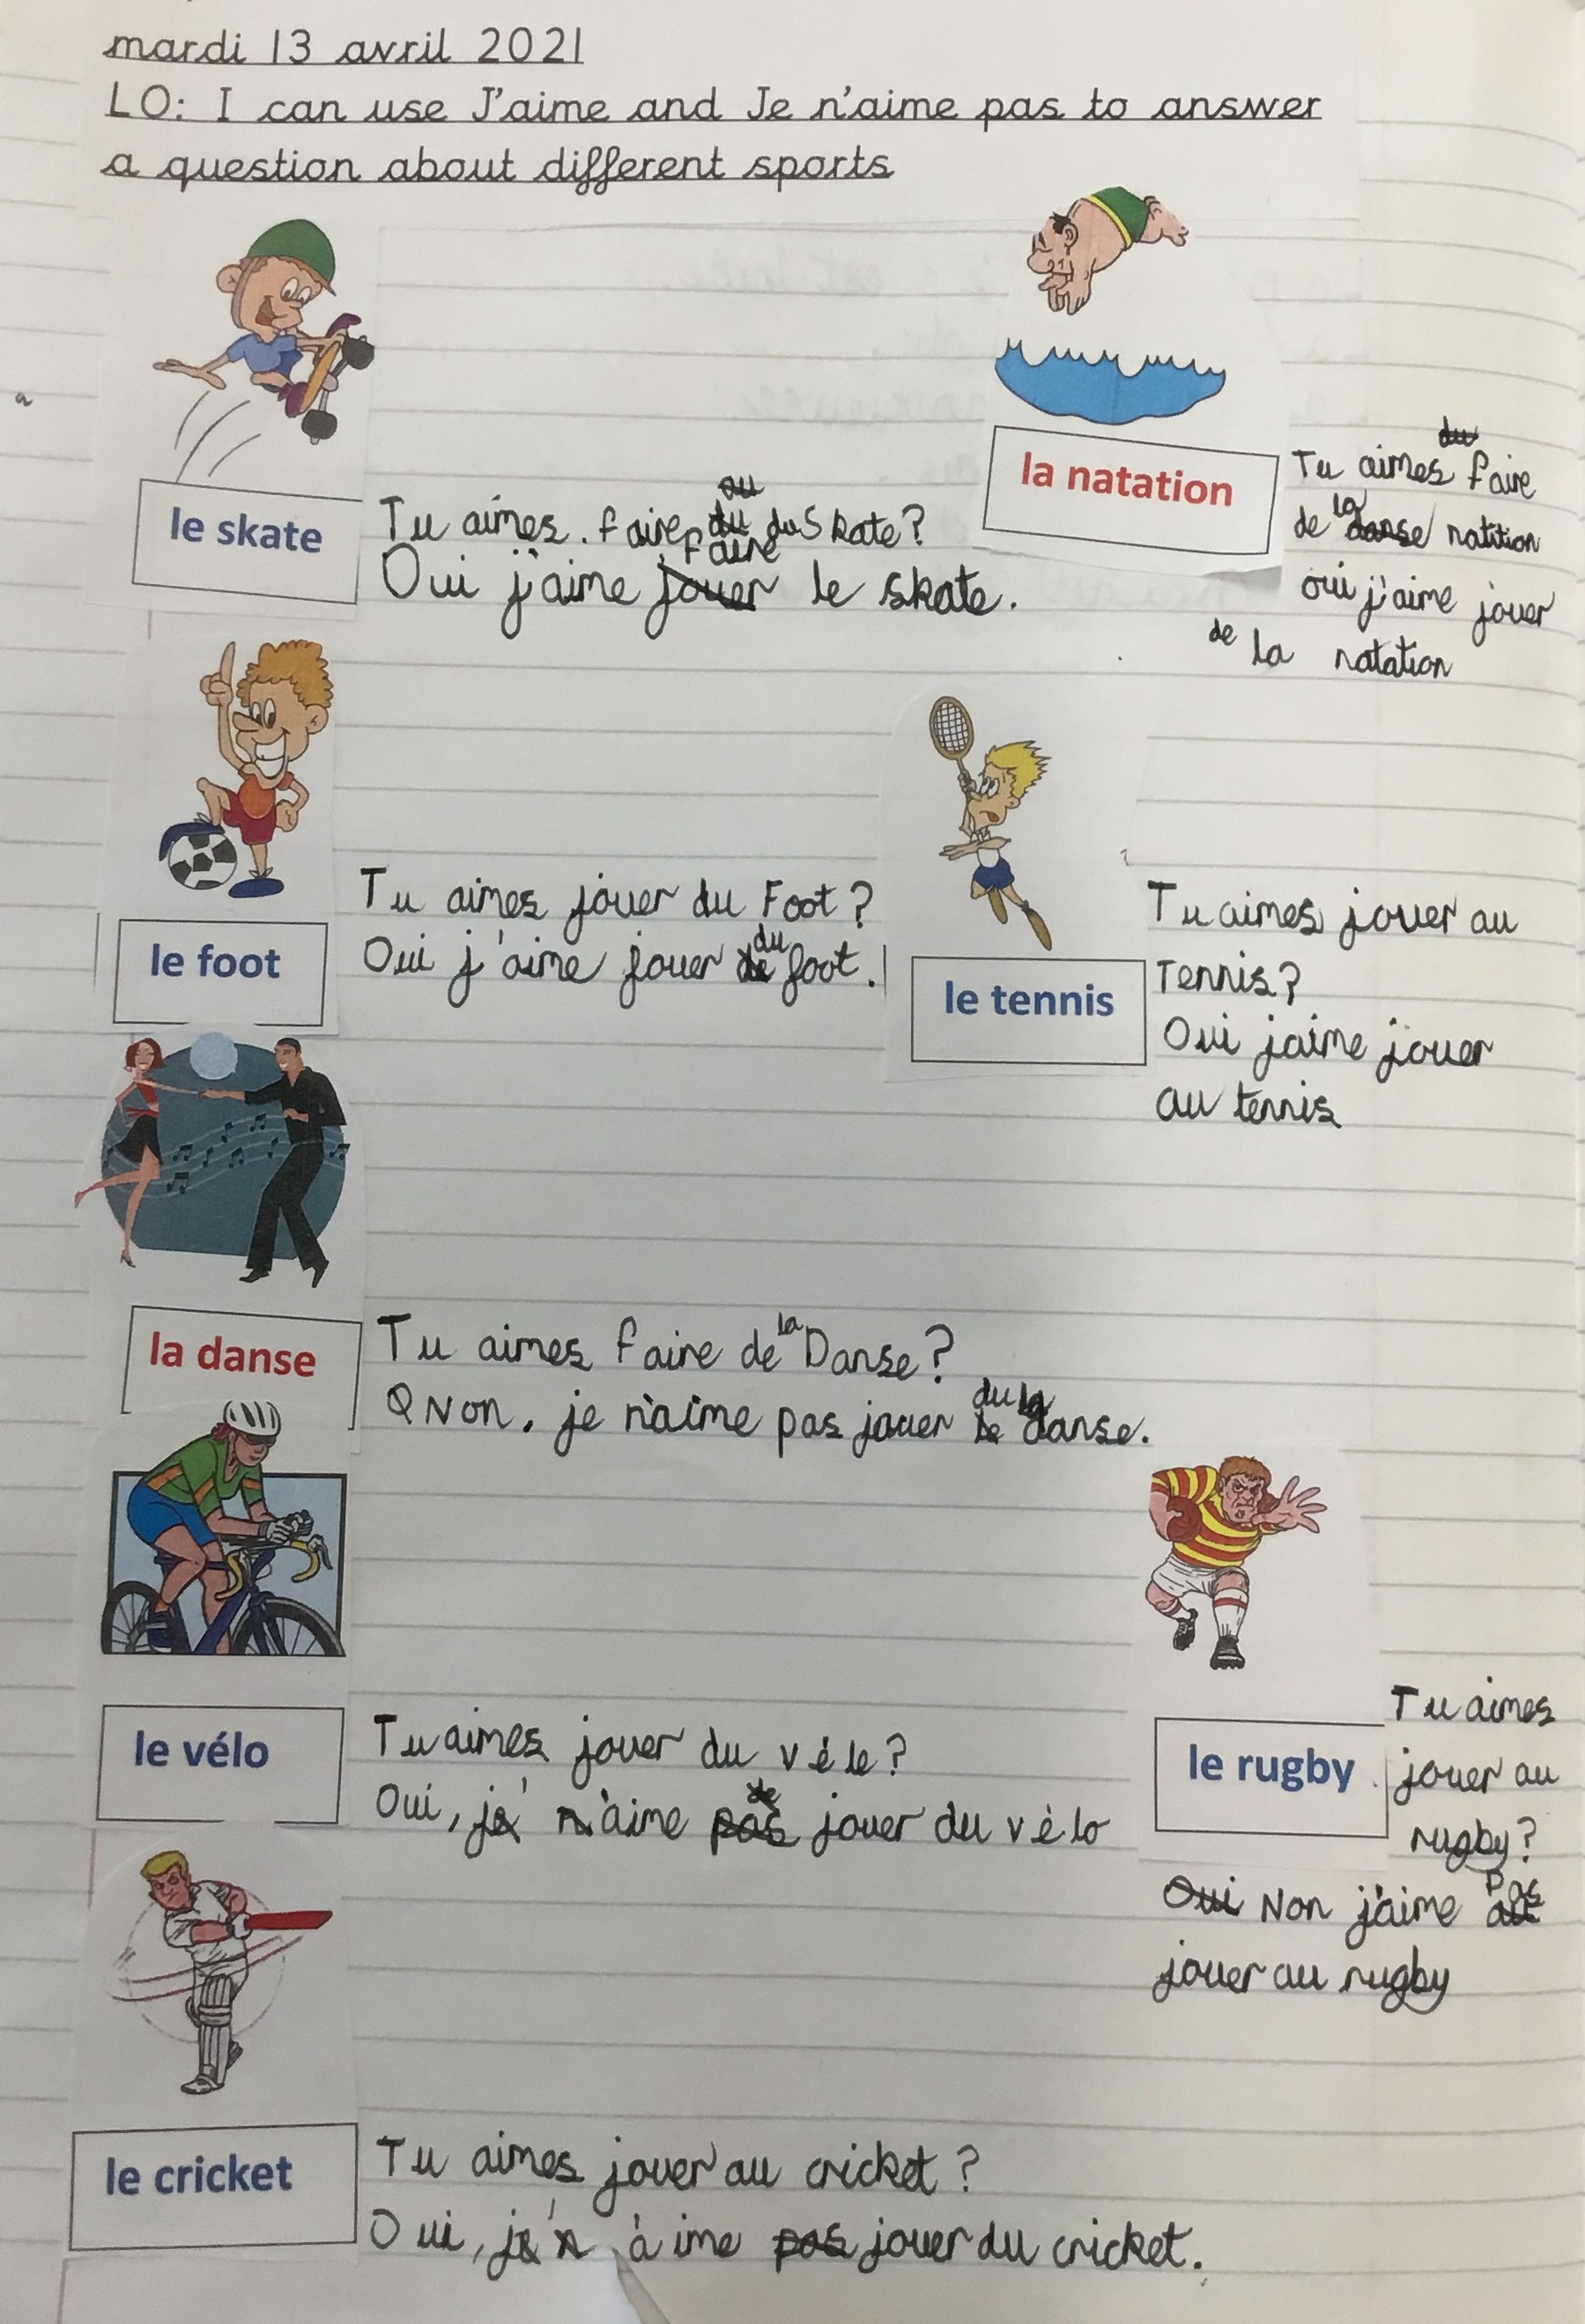 mardi 13 avril 2021
LO: I can use J'aime and Je n'aime pas to answer
a question about different sports
le skate
au
Tu aimes. faire du du Skate?
faire
Oui j'aime jouer le skate.
la natation
du
Tu aimes faire
la
de danse natition
oui j'aime jouer
de la natation
le foot
Tu aimes jouer du Foot?
du
Oui j'aime jouer de foot.
le tennis
Tu aimes jouer au
Tennis?
Oui j'aime jouer
au tennis
la danse
la
Tu aimes faire de Danse?
du la
Non, je n'aime pas jouer le danse.
le vélo
Tu aimes jouer du véle?
de
Oui, je' n'aime pas jouer du vélo
le rugby
Tu aimes
jouer au
rugby?
Pas
Oui Non j'aime au
jouer au rugby
le cricket
Tu aimes jouer au cricket?
Oui, je'n àime pas jouer du cricket.